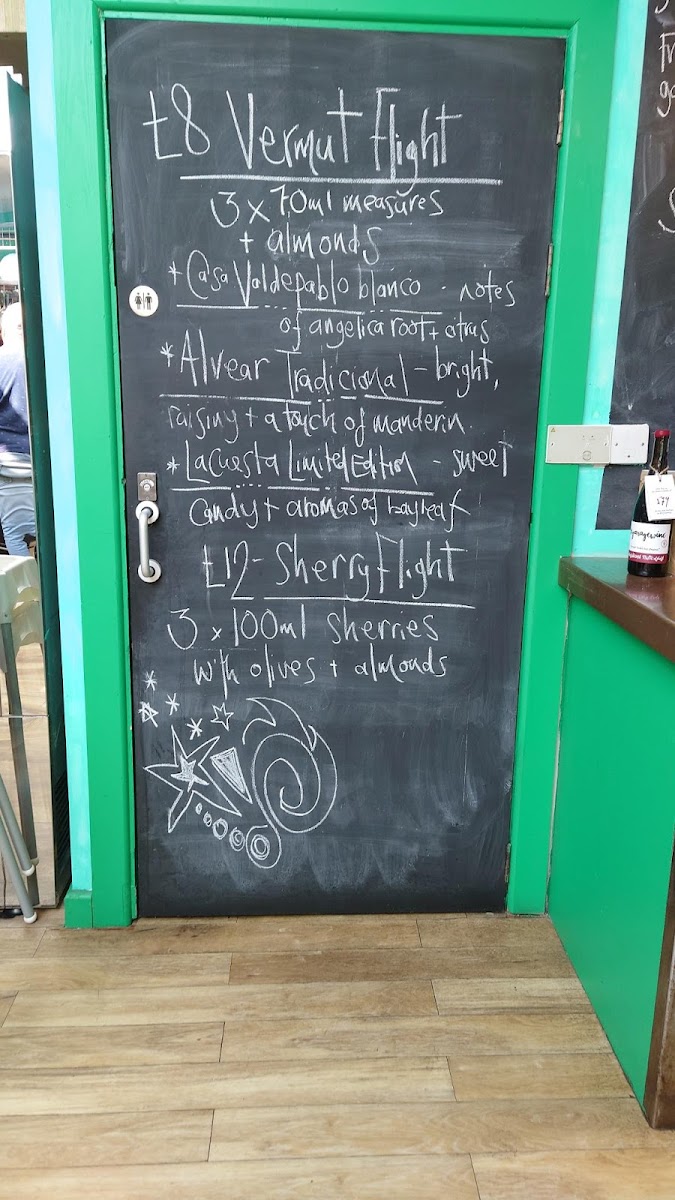 £8 Vermut Flight
3 x 70ml measures
+ almonds
* Casa Valdepablo blanco - notes
of angelica root + citrus
* Alvear Tradicional - bright,
raising + a touch of manderin.
* La Cuesta Limited Edition - sweet
Candy + aromas of bayleaf
£12 - Sherry Flight
3 x 100ml sherries
with olives + almonds